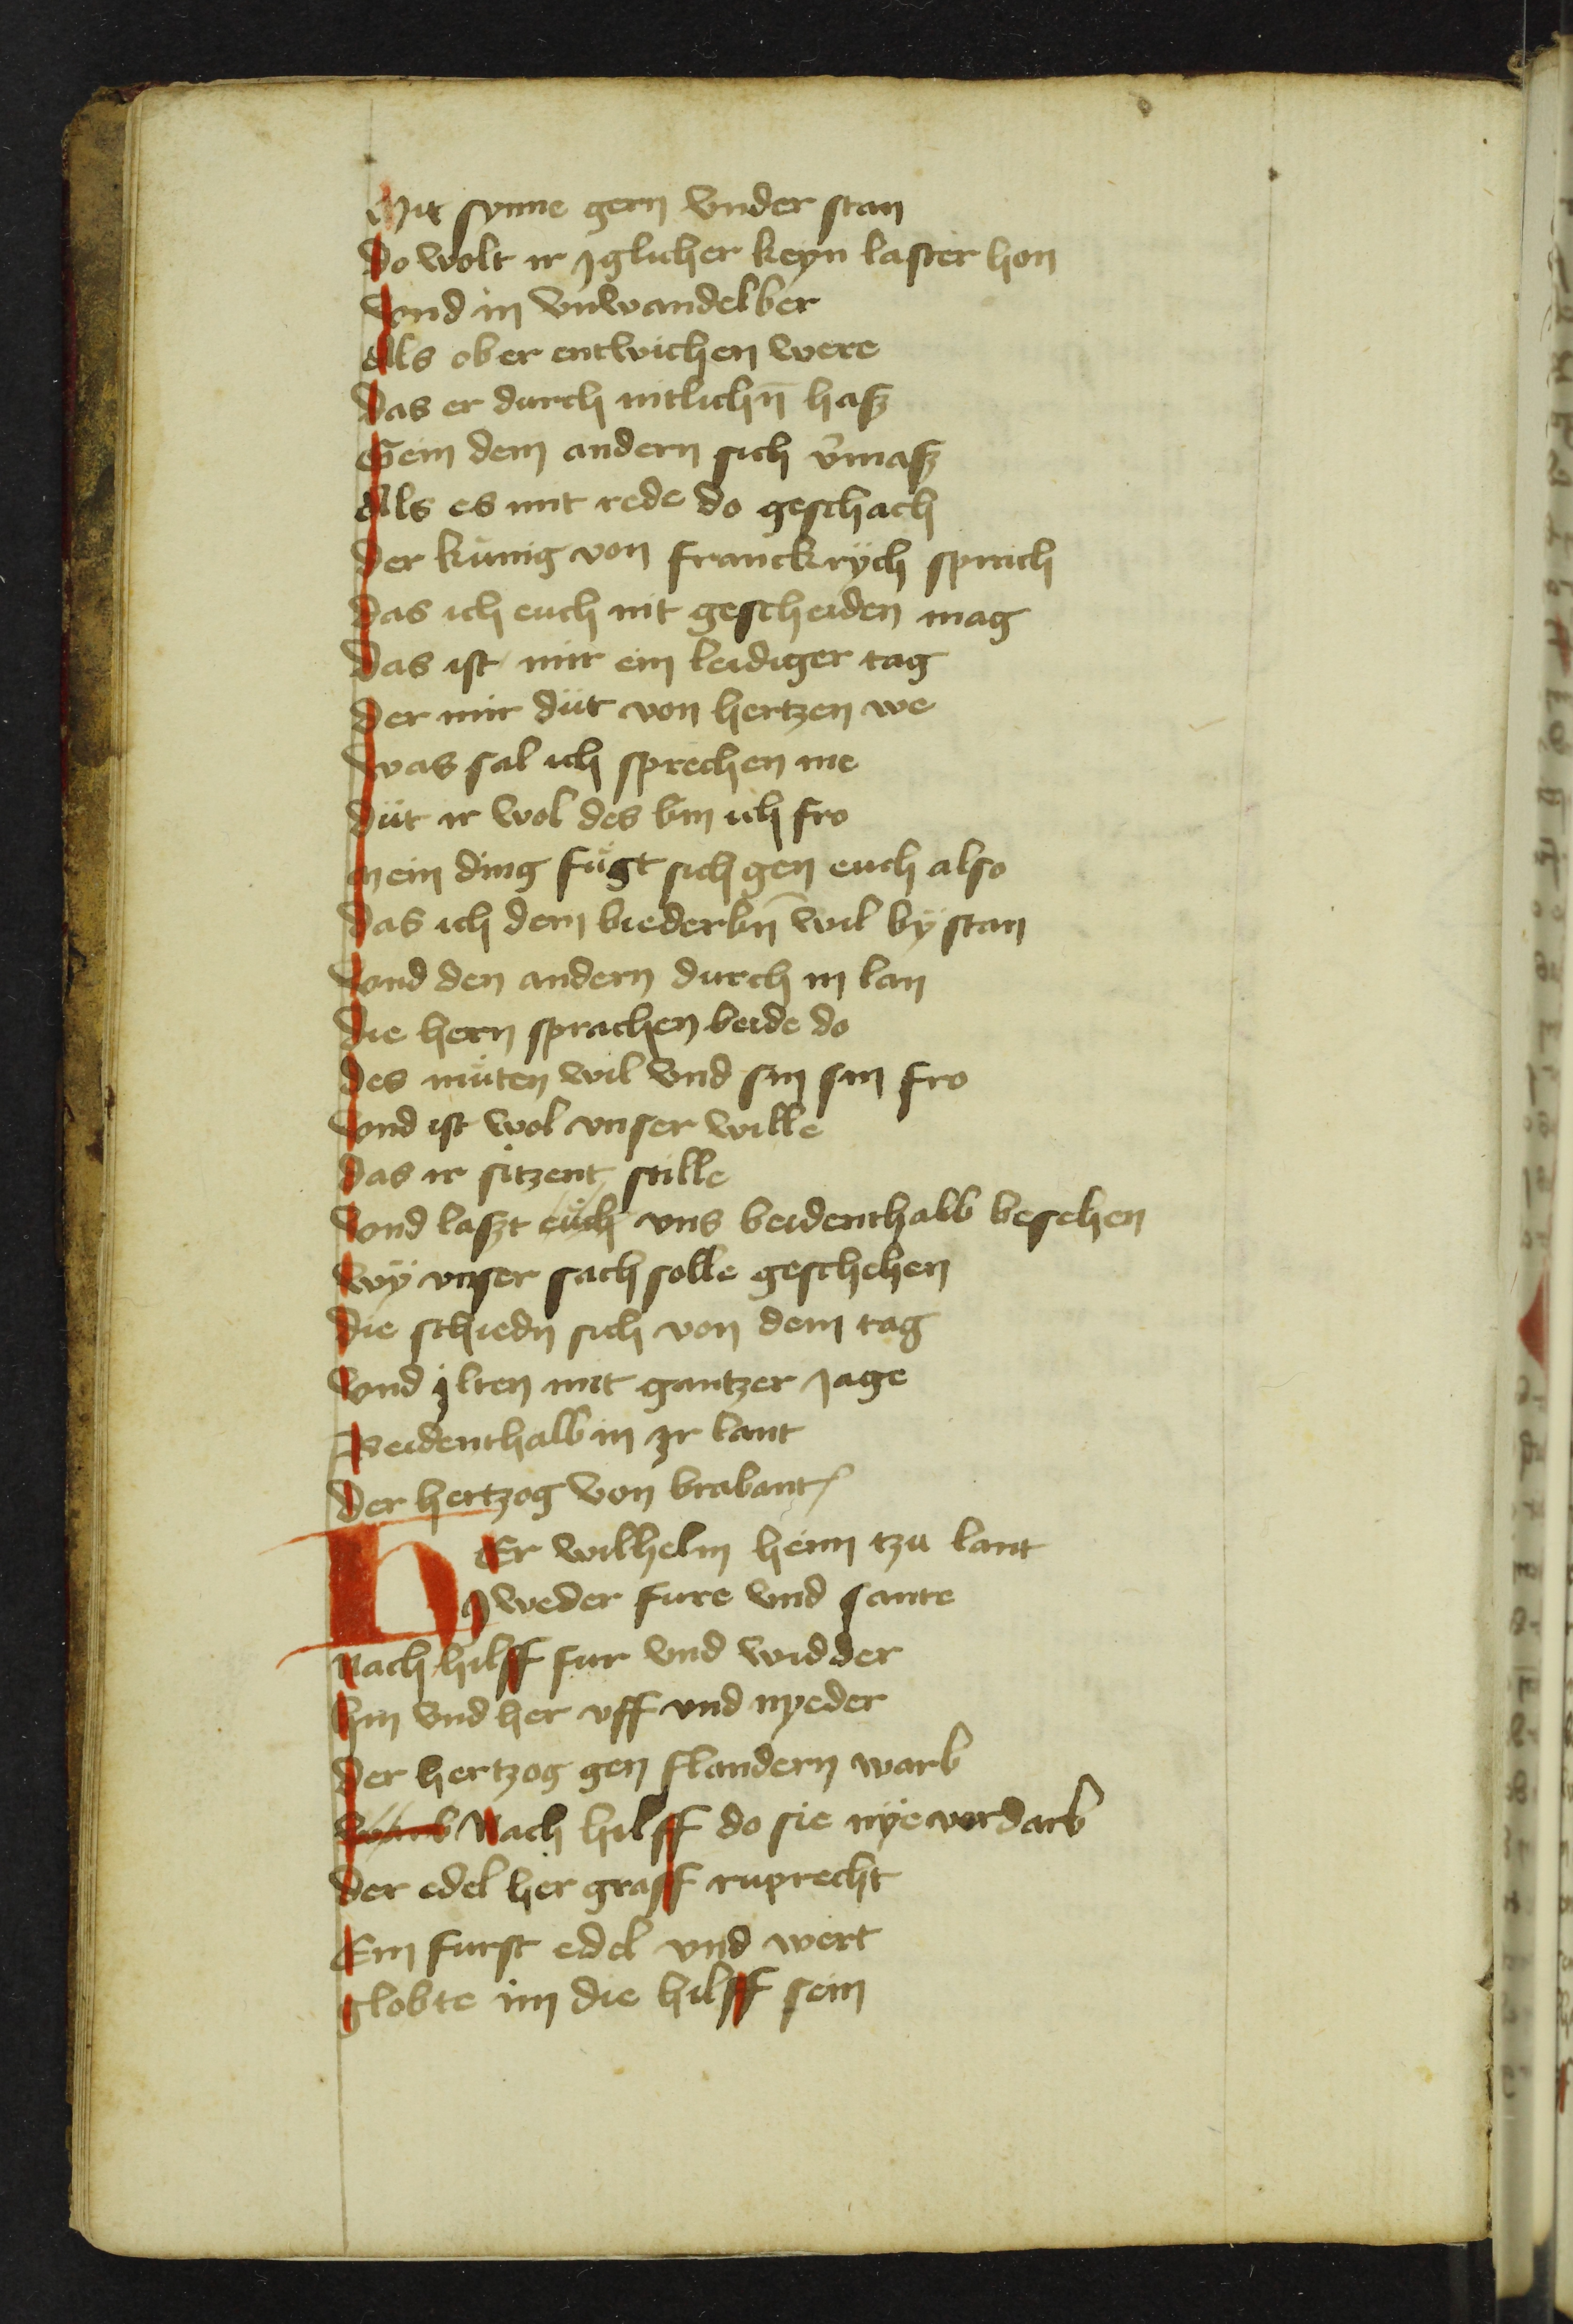 Mit synne gern vnder stan
Do wolt ir yglicher keyn laster hon
Vnd in vnwandelber
Als ob er entwichen were
Das er durch nitlichn̄ hasz
Gein dem andern sich v̾masz
Als es mit rede do geschach
Der kùnig von franckrÿch sprach
Das ich euch nit gescheiden mag
Das ist mir ein leidiger tag
Der mir dùt von hertzen we
Was sal ich sprechen me
Dùt ir wol des bin ich fro
Mein ding fùgt sich gen euch also
Das ich dem biederbn̄ wil bÿ stan
Vnd den andern durch in lan
Die hern sprachen beide do
Des mùten wil vnd sin sin fro
Vnd ist wol vnser wille
Das ir sitzent stille
Vnd laszt eùch vns beidenthalb besehen
Wÿ vnser sach solle geschehen
Die schiedn sich von dem tag
Vnd ylten mit gantzer jage
Beidenthalb in yr lant
Der hertzog von brabant
HEr wilhelm heim tzu lant
yweder fure vnd sante
Nach hilff fur vnd widder
Hin vnd her vff vnd nyeder
Der hertzog gen flandern warb
Warb Nach hilff do sie nÿe verdarb
Der edel her graff ruprecht
Ein furst edel vnd wert
Globte im die hilff sein